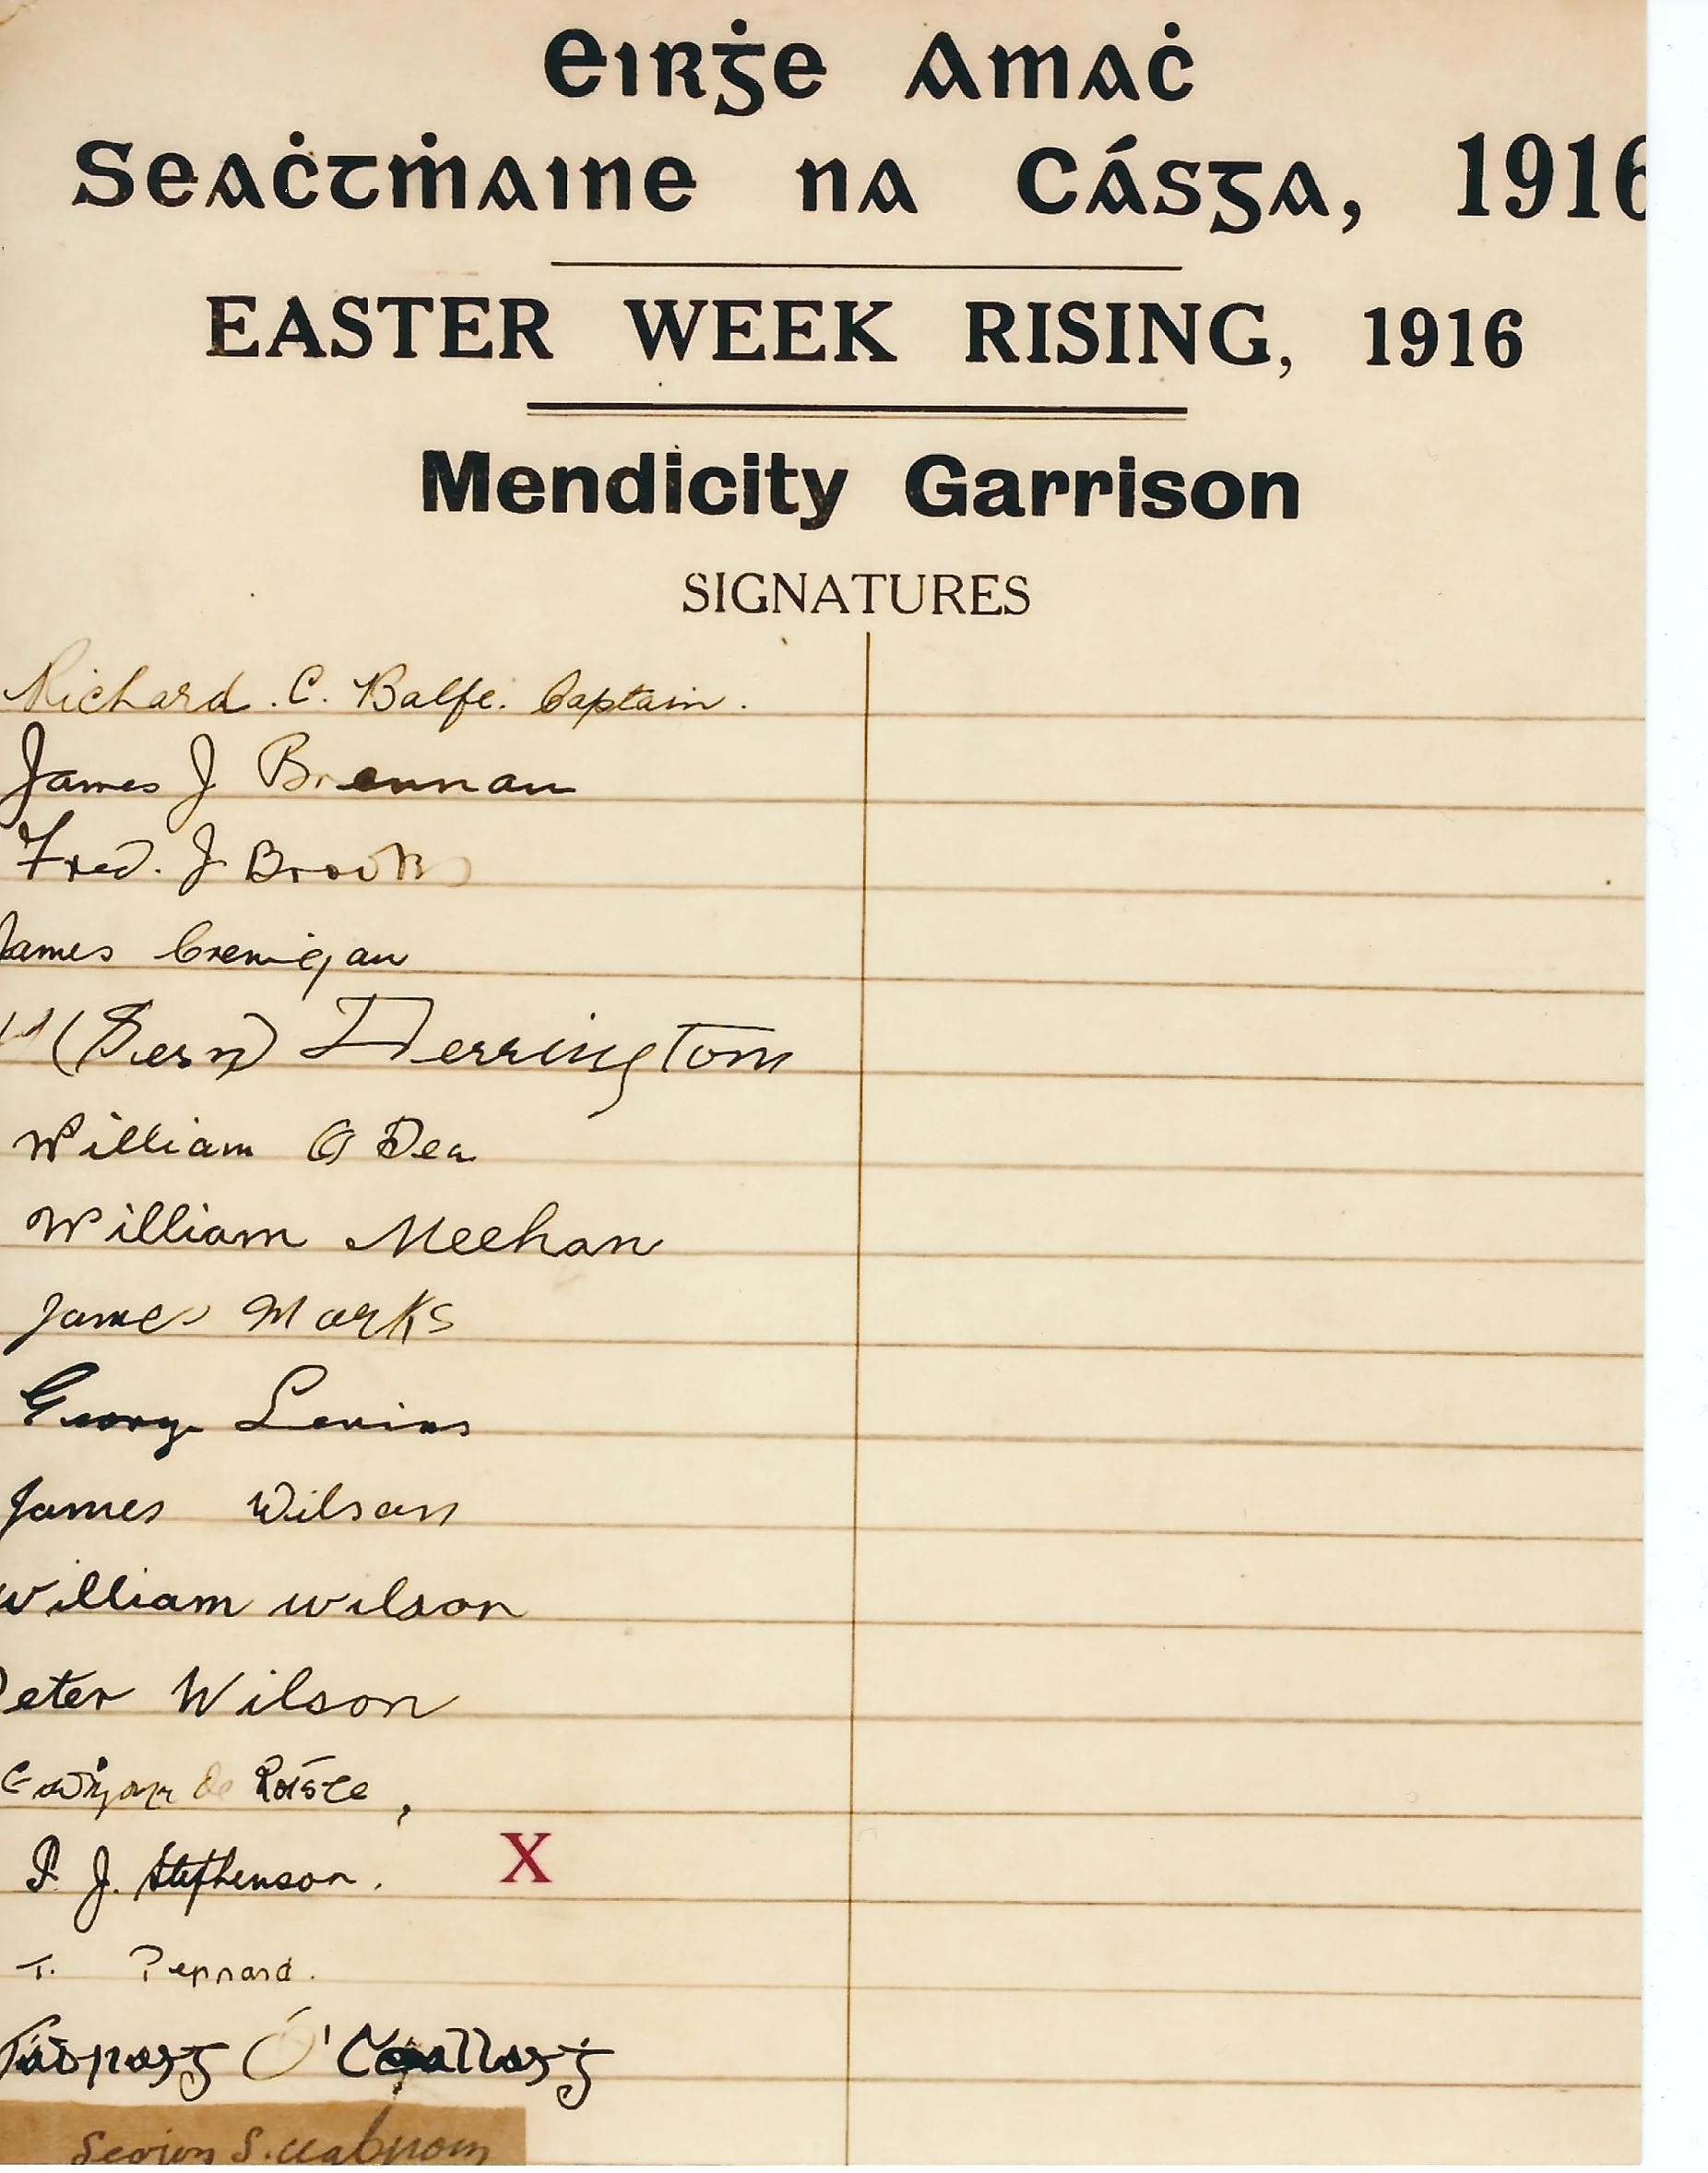 Eirġe Amaċ
Seaċtṁaine na Cásga, 1916
EASTER WEEK RISING, 1916
Mendicity Garrison
SIGNATURES
Richard. C. Balfe. Captain.
James J Brennan
Fred. J Brooks
James Crenigan
Derrington
William O Dea
William Meehan
James Marks
George Levins
James Wilson
William Wilson
Peter Wilson
de Róiste,
P. J. Stephenson. X
T. Peppard.
Pádraig Ó'Ceallaiġ